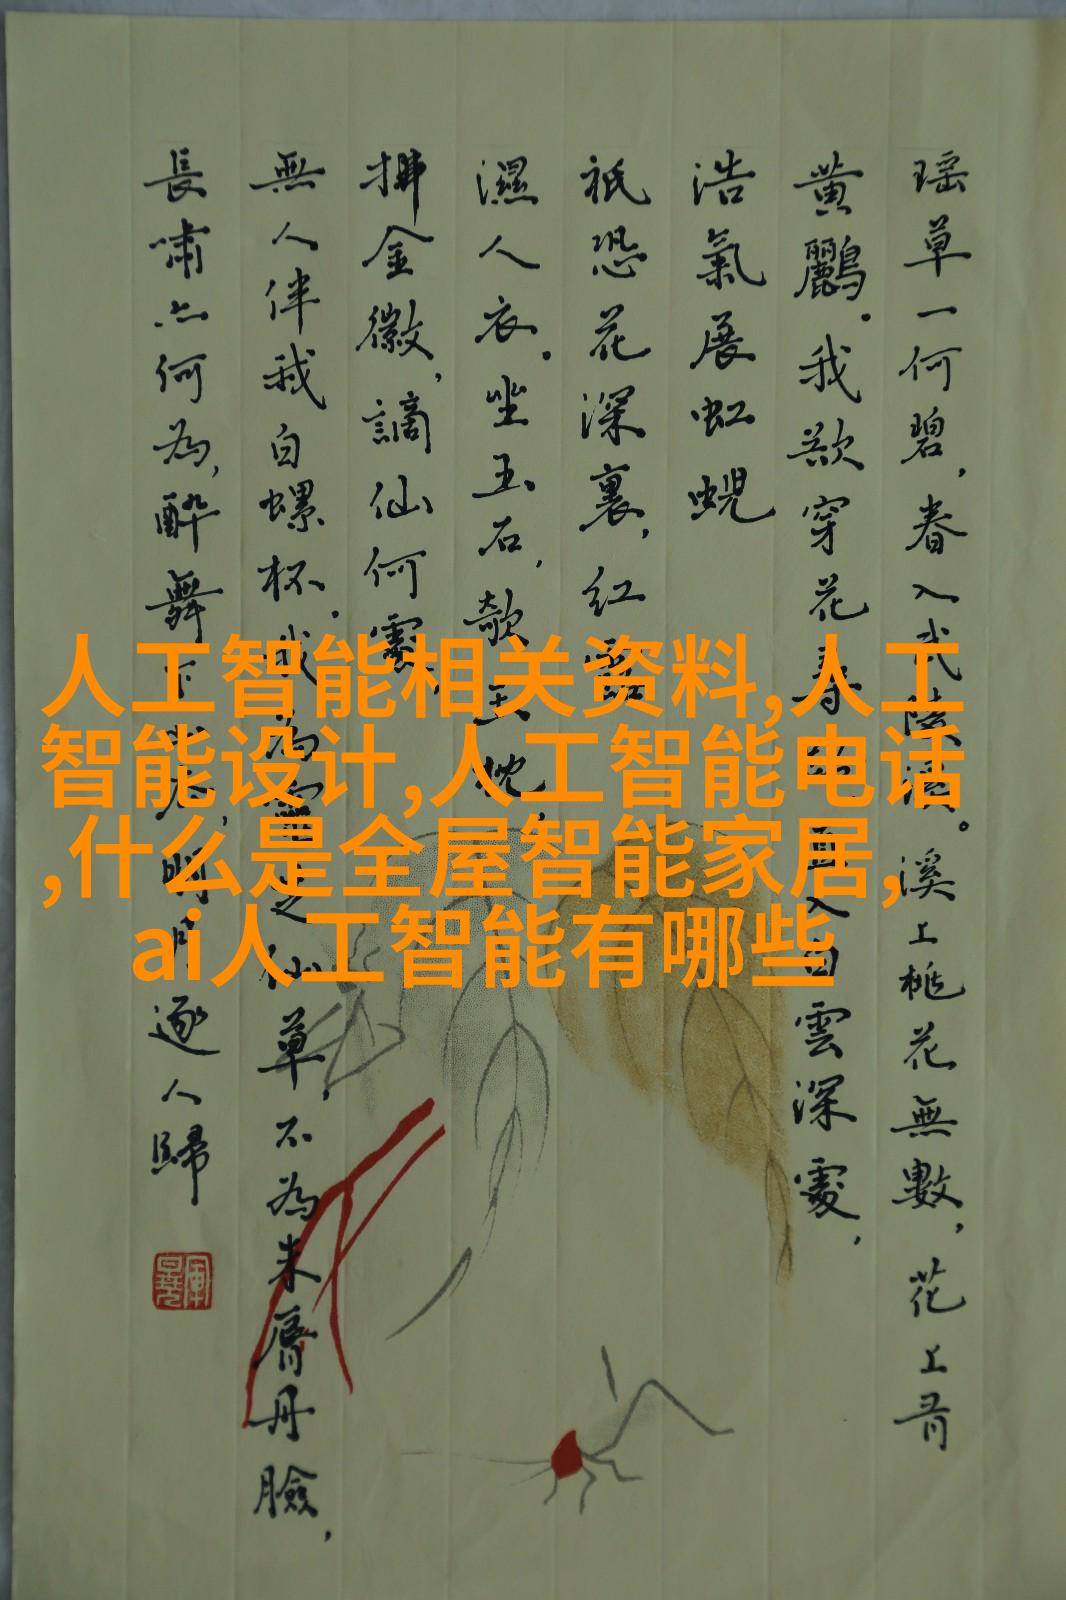 瑶草一何碧，春入武陵溪。溪上桃花無數，花上有
黄鸝。我欲穿花尋路，直入白雲深處，
浩氣展虹蜺
祇恐花深裏，红露
濕人衣。坐玉石，欹玉枕，
拂金徽，謫仙何處，
無人伴我白螺杯。我為靈芝仙草，不為朱脣丹臉，
長嘯亦何為，醉舞下山去，明月逐人歸
人工智能相关资料,人工
智能设计,人工智能电话
,什么是全屋智能家居,
ai人工智能有哪些